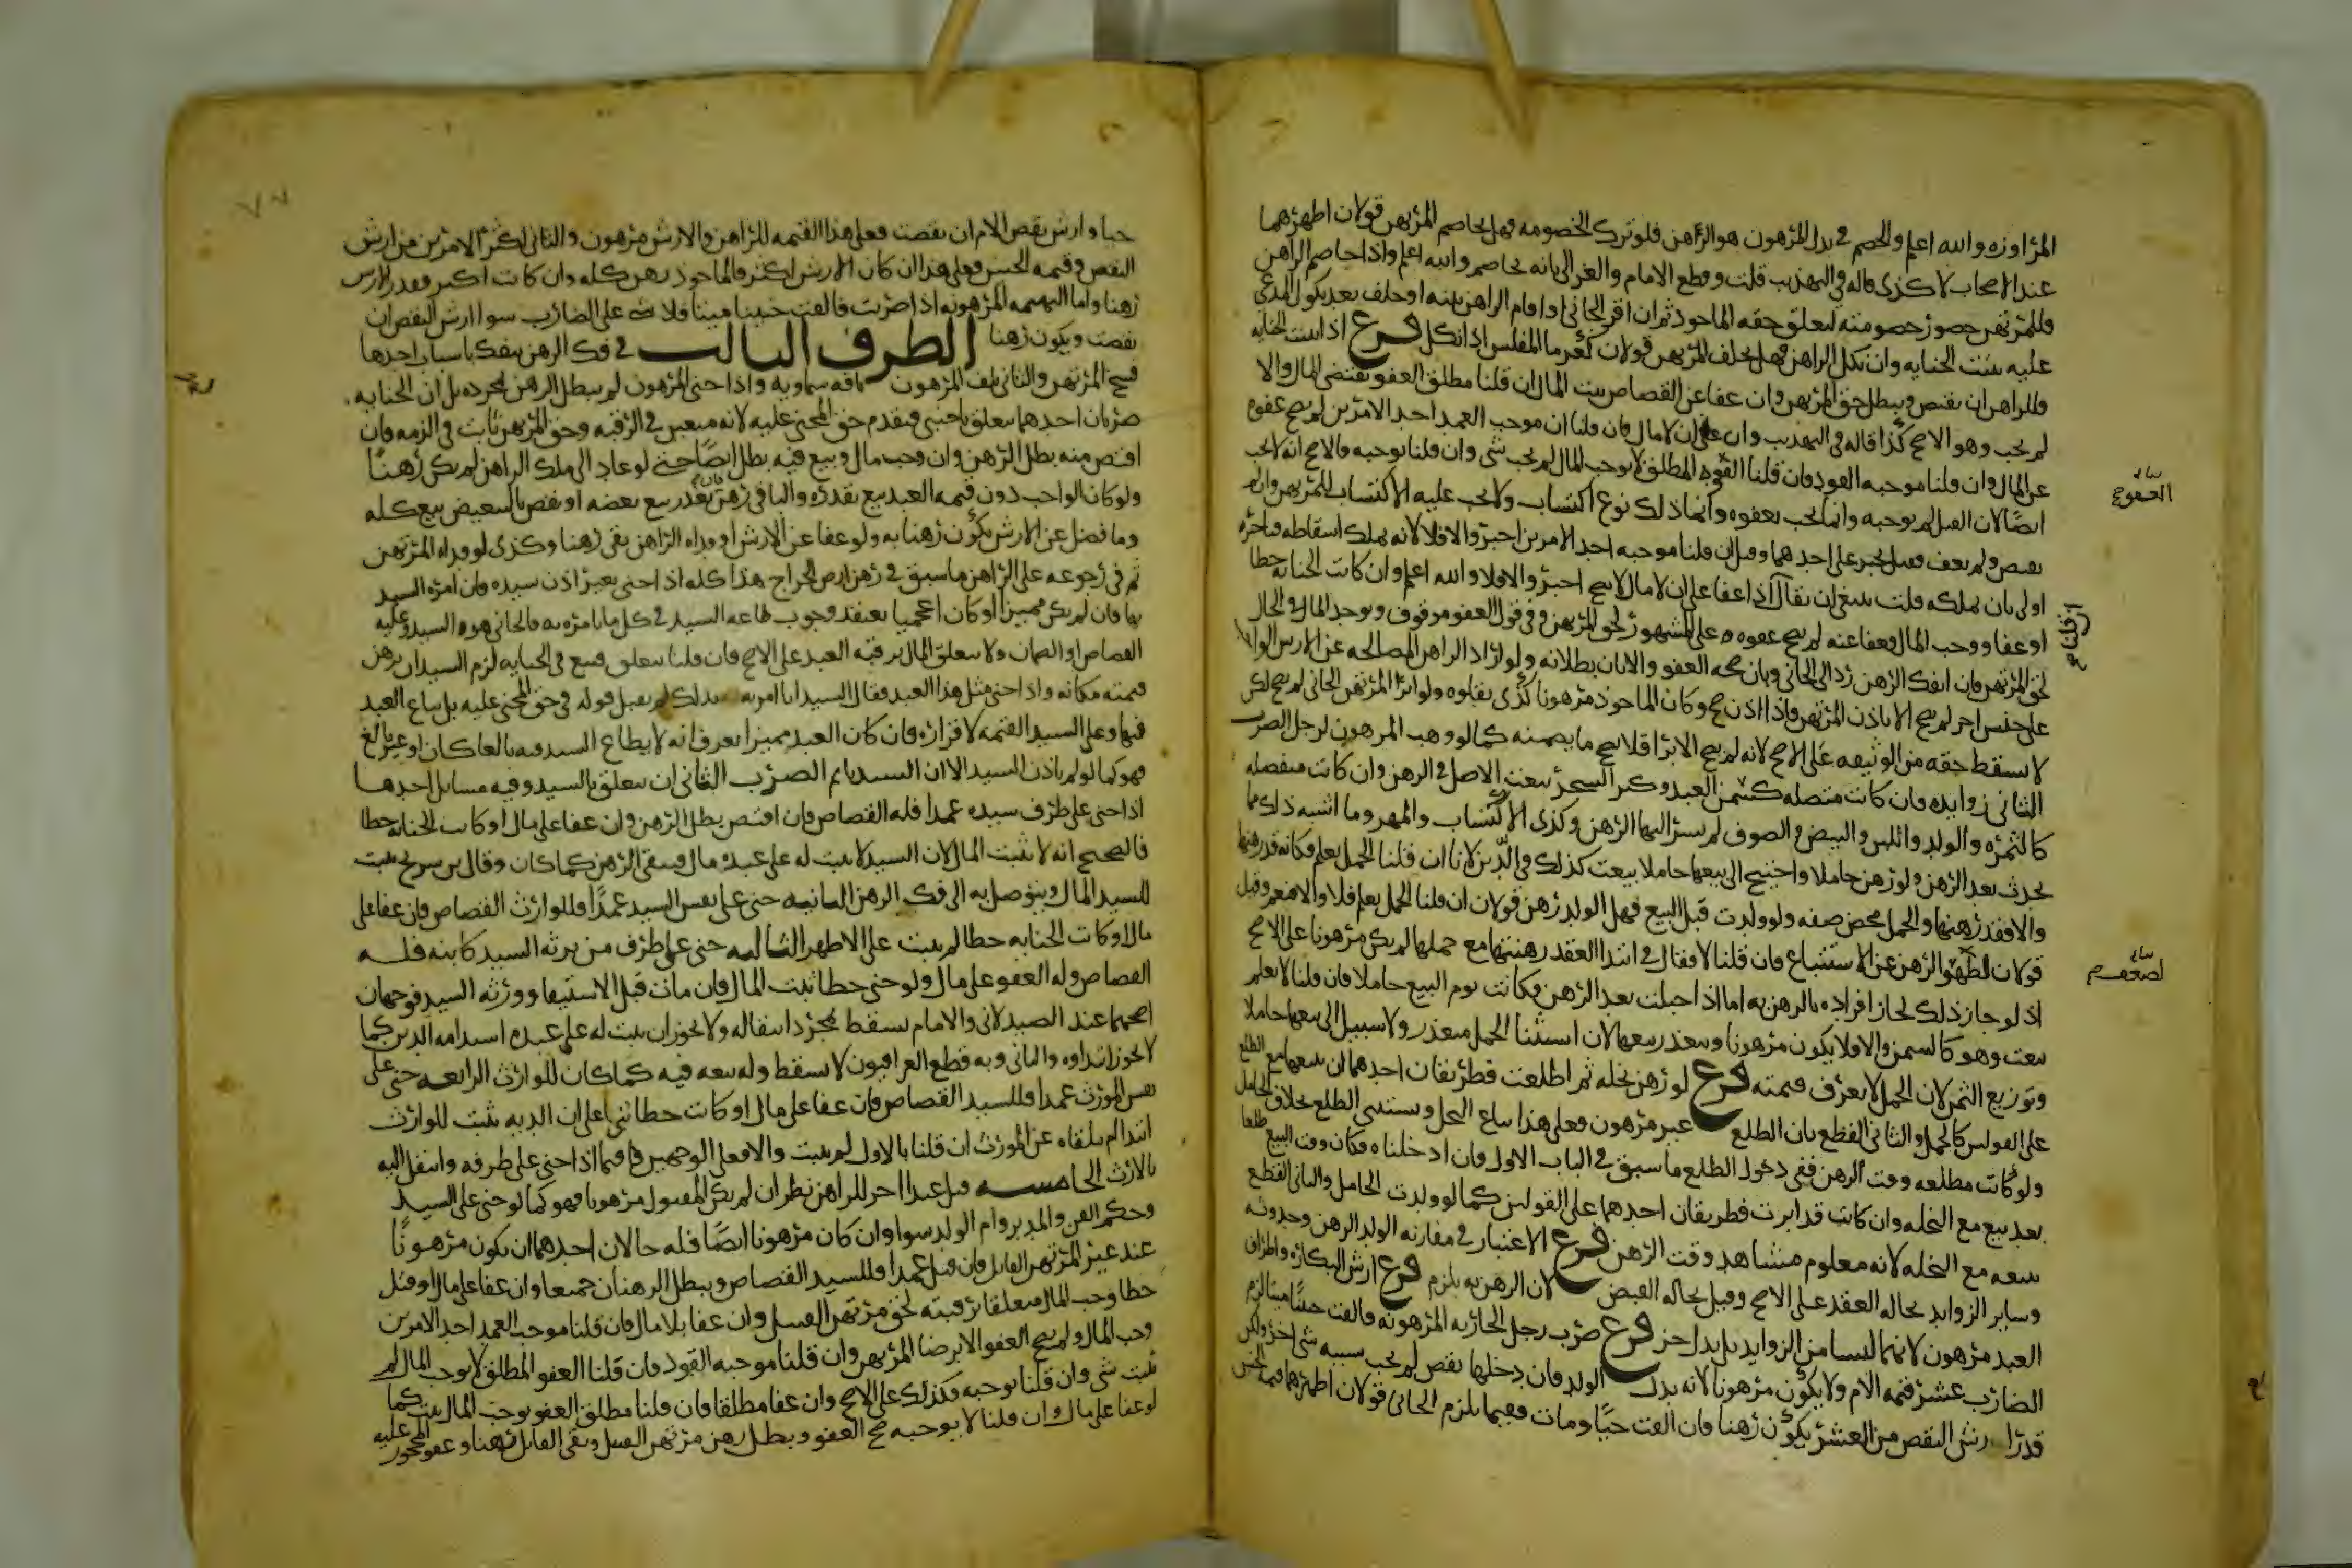 المراوزه والله اعلم والخصم في بدل المرهون هو الراهن فلو ترك الخصومه فهل يخاصم المرتهن قولان اظهرهما
عند الاصحاب لا كذى قاله في التهذيب قلت وقطع الامام والغزالي بانه يخاصم والله اعلم واذا خاصم الراهن
فللمرتهن حضور خصومته لتعلق حقه بالماخوذ ثم ان اقر الجاني او اقام الراهن بينه او حلف بعد نكول المدعى
عليه ثبتت الجنايه وان نكل الراهن فهل يحلف المرتهن قولان كغرما المفلس اذا نكل فرع اذا ثبتت الجنايه
فللراهن ان يقتص ويبطل حق المرتهن وان عفا عن القصاص ثبت المال ان قلنا مطلق العفو يقتضى المال والا
لم يجب وهو الاصح كذا قاله في التهذيب وان عفا على ان لا مال فان قلنا ان موجب العمد احد الامرين لم يصح عفوه
عن المال وان قلنا موجبه القود فان قلنا العفو المطلق لا يوجب المال لم يجب شي وان قلنا يوجبه فالاصح انه لا يجب
ايضا لان القتل لم يوجبه وانما يجب بعفوه وانما ذلك نوع اكتساب ولا يجب عليه الاكتساب للمرتهن وان لم
يقتص ولم يعف فهل يجبر على احدهما وقيل ان قلنا موجبه احد الامرين اجبر والا فلا لانه يملك اسقاطه فتاخره
اولى بان يملكه قلت ينبغي ان يقال اذا عفا على ان لا مال لا يصح اجبر والا فلا والله اعلم وان كانت الجنايه خطا
او عفا ووجب المال فعفا عنه لم يصح عفوه على المشهور لحق المرتهن وفي قول العفو موقوف ويوخذ المال في الحال
لحق المرتهن فان انفك الرهن رد الى الجاني وبان صحه العفو والا بان بطلانه ولو اراد الراهن المصالحه عن الارش الواجب
على جنس اخر لم يصح الا باذن المرتهن فاذا اذن صح وكان الماخوذ مرهونا كذى نقلوه ولو ابرا المرتهن الجاني لم يصح لكن
لا يسقط حقه من الوثيقه على الاصح لانه لم يصح الابرا فلا يصح ما يضمنه كما لو وهب المرهون لرجل الضرب
الثاني زوايده فان كانت متصله كسمن العبد وكبر الشجر تبعت الاصل في الرهن وان كانت منفصله
كالثمره والولد واللبن والبيض والصوف لم يسر اليها الرهن وكذى الاكتساب والمهر وما اشبه ذلك مما
يحدث بعد الرهن ولو رهن حاملا واحتيج الى بيعها حاملا بيعت كذلك في الدين لانا ان قلنا الحمل يعلم فكانه قد رهنها
والا فقد رهنها والحمل محض صفه ولو ولدت قبل البيع فهل الولد رهن قولان ان قلنا الحمل يعلم فلا والا فنعم وقيل
قولان لضعف الرهن عن الاستتباع فان قلنا لا فقال في ابتدا العقد رهنتها مع حملها لم يكن مرهونا على الاصح
اذ لو جاز ذلك لجاز افراده بالرهن به اما اذا حبلت بعد الرهن فكانت يوم البيع حاملا فان قلنا لا يعلم
بيعت وهو كالسمن والا فلا يكون مرهونا ويتعذر بيعها لان استثنا الحمل متعذر ولا سبيل الى بيعها حاملا
وتوزيع الثمن لان الحمل لا يعرف قيمته فرع لو رهن نخله ثم اطلعت فطريقان احدهما ان بيعها مع الطلع
على القولين كالحمل والثاني القطع بان الطلع غير مرهون فعلى هذا يباع النخل ويستثنى الطلع بخلاف الحامل
ولو كانت مطلعه وقت الرهن ففي دخول الطلع ما سبق في الباب الاول فان ادخلناه فكان وقت البيع طلعا
بعد بيع مع النخله وان كانت قد ابرت فطريقان احدهما على القولين كما لو ولدت الحامل والثاني القطع
ببيعه مع النخله لانه معلوم مشاهد وقت الرهن فرع الاعتبار في مقارنه الولد الرهن وحدوثه
وساير الزوايد بحاله العقد على الاصح وقيل بحاله القبض لان الرهن به يلزم فرع ارش البكاره واطراف
العبد مرهون لانهما ليسا من الزوايد بل بدل جز فرع ضرب رجل الجاريه المرهونه فالقت جنينا ميتا لزم
الضارب عشر قيمه الام ولا يكون مرهونا لانه بدل الولد فان دخلها نقص لم يجب بسببه شي اخر ولكن
قدر ارش النقص من العشر يكون رهنا فان القت حيا ومات ففيما يلزم الجاني قولان اظهرهما قيمه الجنين
العفو صح
لضعف
حيا وارش نقص الام ان نقصت فعلى هذا القيمه للراهن والارش مرهون والثاني اكثر الامرين من ارش
النقص وقيمه الجنين فعلى هذا ان كان الارش اكثر فالماخوذ رهن كله وان كانت اكثر فقدر الارش
رهنا واما البهيمه المرهونه اذا ضربت فالقت جنينا ميتا فلا شي على الضارب سوا ارش النقص ان
نقصت ويكون رهنا الطرف الثالث في فك الرهن ينفك باسباب احدها
فسخ المرتهن والثاني تلف المرهون بافه سماويه واذا جنى المرهون لم يبطل الرهن بمجرده بل ان الجنايه
ضربان احدهما يتعلق باجنبي فيقدم حق المجني عليه لانه متعين في الرقبه وحق المرتهن ثابت في الذمه فان
اقتص منه بطل الرهن وان وجب مال وبيع فيه بطل ايضا حتى لو عاد الى ملك الراهن لم يكن رهنا
ولو كان الواجب دون قيمه العبد بيع بقدره والباقي رهن فان تعذر بيع بعضه او نقص بالتبعيض بيع كله
وما فضل عن الارش يكون رهنا به ولو عفا عن الارش او فداه الراهن بقى رهنا وكذى لو فداه المرتهن
ثم في رجوعه على الراهن ما سبق في رهن ارض الخراج هذا كله اذا جنى بغير اذن سيده فان امره السيد
بها فان لم يكن مميزا او كان اعجميا يعتقد وجوب طاعه السيد في كل ما يامره به فالجاني هو السيد وعليه
القصاص او الضمان ولا يتعلق المال برقبه العبد على الاصح فان قلنا يتعلق فبيع في الجنايه لزم السيد ان يرهن
قيمته مكانه واذا جنى مثل هذا العبد فقال السيد انا امرته بذلك لم يقبل قوله في حق المجني عليه بل يباع العبد
فيها وعلى السيد القيمه لاقراره فان كان العبد مميزا يعرف انه لا يطاع السيد فيه بالغا كان او غير بالغ
فهو كما لو لم ياذن السيد الا ان السيد ياثم الضرب الثاني ان يتعلق بالسيد وفيه مسايل احدها
اذا جنى على طرف سيده عمدا فله القصاص فان اقتص بطل الرهن وان عفا على مال او كانت الجنايه خطا
فالصحيح انه لا يثبت المال لان السيد لا يثبت له على عبده مال فيبقى الرهن كما كان وقال بن سريج يثبت
للسيد المال ويتوصل به الى فك الرهن الثانيه جنى على نفس السيد عمدا فللوارث القصاص فان عفا على
مال او كانت الجنايه خطا لم يثبت على الاظهر الثالثه جنى على طرف من يرثه السيد كابنه فله
القصاص وله العفو على مال ولو جنى خطا ثبت المال فان مات قبل الاستيفا وورثه السيد فوجهان
اصحهما عند الصيدلاني والامام يسقط بمجرد انتقاله ولا يجوز ان يثبت له على عبده استدامه الدين كما
لا يجوز ابتداوه والثاني وبه قطع العراقيون لا يسقط وله بيعه فيه كما كان للوارث الرابعه جنى على
نفس المورث عمدا فللسيد القصاص فان عفا على مال او كانت خطا بني على ان الديه تثبت للوارث
ابتدا ام يتلقاه عن المورث ان قلنا بالاول لم يثبت والا فعلى الوجهين فيما اذا جنى على طرفه وانتقل اليه
بالارث الخامسه قتل عبدا اخر للراهن نظر ان لم يكن المقتول مرهونا فهو كما لو جنى على السيد
وحكم القن والمدبر وام الولد سوا وان كان مرهونا ايضا فله حالان احدهما ان يكون مرهونا
عند غير المرتهن القاتل فان قتل عمدا فللسيد القصاص ويبطل الرهنان جميعا وان عفا على مال او قتل
خطا وجب المال متعلقا برقبته لحق مرتهن القتيل وان عفا بلا مال فان قلنا موجب العمد احد الامرين
وجب المال ولم يصح العفو الا برضا المرتهن وان قلنا موجبه القود فان قلنا العفو المطلق لا يوجب المال لم
يثبت شي وان قلنا يوجبه فكذلك على الاصح وان عفا مطلقا فان قلنا مطلق العفو يوجب المال يثبت كما
لو عفا على مال وان قلنا لا يوجبه صح العفو وبطل رهن مرتهن القتيل وبقى القاتل رهنا وعفو المحجور عليه